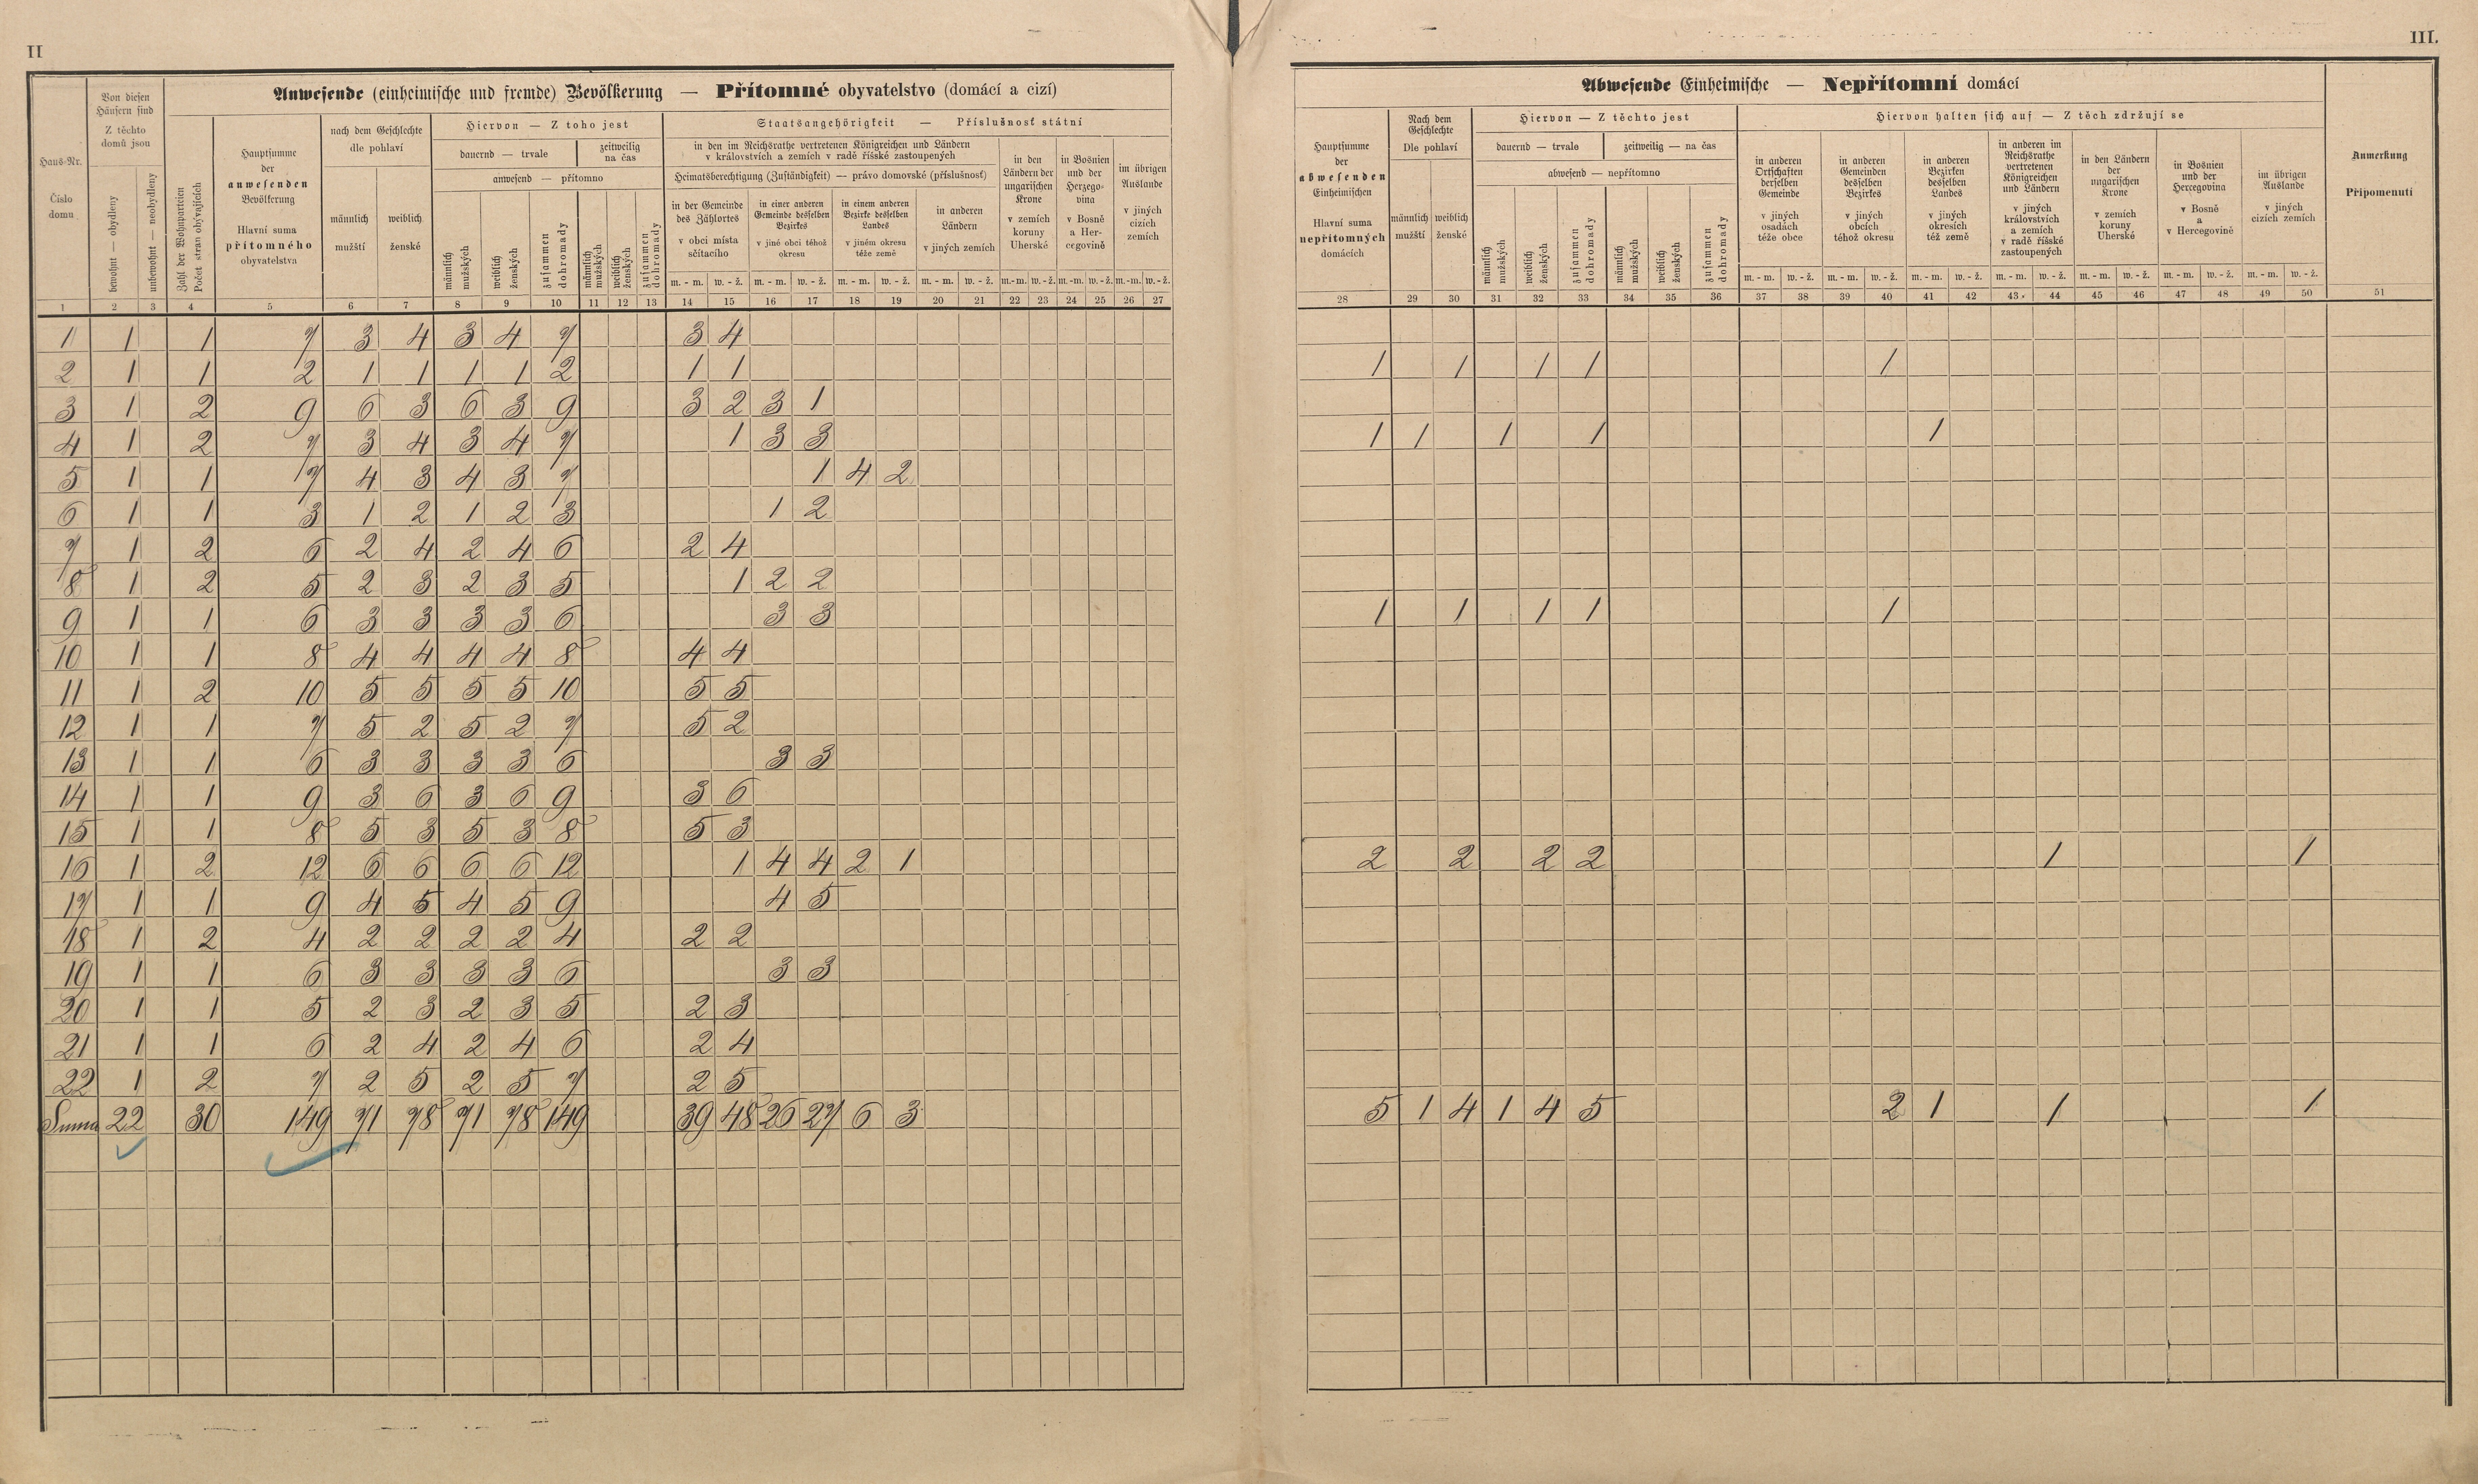 II
III.
Anwesende (einheimische und fremde) Bevölkerung — Přítomné obyvatelstvo (domácí a cizí)
Haus-Nr.
Číslo domu
Von diesen Häusern sind
Z těchto domů jsou
bewohnt — obydleny
unbewohnt — neobydleny
Zahl der Wohnparteien
Počet stran obývajících
Hauptsumme
der
anwesenden
Bevölkerung
Hlavní suma
přítomného
obyvatelstva
nach dem Geschlechte
dle pohlaví
männlich
mužští
weiblich
ženské
Hiervon — Z toho jest
dauernd — trvale
zeitweilig
na čas
anwesend — přítomno
männlich
mužských
weiblich
ženských
zusammen
dohromady
männlich
mužských
weiblich
ženských
zusammen
dohromady
Staatsangehörigkeit — Příslušnosť státní
in den im Reichsrathe vertretenen Königreichen und Ländern
v královstvích a zemích v radě říšské zastoupených
Heimatsberechtigung (Zuständigkeit) — právo domovské (příslušnosť)
in der Gemeinde des Zählortes
v obci místa sčítacího
in einer anderen Gemeinde desselben Bezirkes
v jiné obci téhož okresu
in einem anderen Bezirke desselben Landes
v jiném okresu téže země
in anderen Ländern
v jiných zemích
in den Ländern der ungarischen Krone
v zemích koruny Uherské
in Bosnien und der Herzegovina
v Bosně a Hercegovině
im übrigen Auslande
v jiných cizích zemích
m. - m. w. - ž. m. - m. w. - ž. m. - m. w. - ž. m. - m. w. - ž. m.-m. w.-ž. m.-m. w.-ž. m.-m. w.-ž.
1 2 3 4 5 6 7 8 9 10 11 12 13 14 15 16 17 18 19 20 21 22 23 24 25 26 27
1 1 1 7 3 4 3 4 7 3 4
2 1 1 2 1 1 1 1 2 1 1
3 1 2 9 6 3 6 3 9 3 2 3 1
4 1 2 7 3 4 3 4 7 1 3 3
5 1 1 7 4 3 4 3 7 1 4 2
6 1 1 3 1 2 1 2 3 1 2
7 1 2 6 2 4 2 4 6 2 4
8 1 2 5 2 3 2 3 5 1 2 2
9 1 1 6 3 3 3 3 6 3 3
10 1 1 8 4 4 4 4 8 4 4
11 1 2 10 5 5 5 5 10 5 5
12 1 1 7 5 2 5 2 7 5 2
13 1 1 6 3 3 3 3 6 3 3
14 1 1 9 3 6 3 6 9 3 6
15 1 1 8 5 3 5 3 8 5 3
16 1 2 12 6 6 6 6 12 1 4 4 2 1
17 1 1 9 4 5 4 5 9 4 5
18 1 2 4 2 2 2 2 4 2 2
19 1 1 6 3 3 3 3 6 3 3
20 1 1 5 2 3 2 3 5 2 3
21 1 1 6 2 4 2 4 6 2 4
22 1 2 7 2 5 2 5 7 2 5
Suma 22 30 149 71 78 71 78 149 39 48 26 27 6 3
Abwesende Einheimische — Nepřítomní domácí
Hauptsumme
der
abwesenden
Einheimischen
Hlavní suma
nepřítomných
domácích
Nach dem Geschlechte
Dle pohlaví
männlich
mužští
weiblich
ženské
Hiervon — Z těchto jest
dauernd — trvale
zeitweilig — na čas
abwesend — nepřítomno
männlich
mužských
weiblich
ženských
zusammen
dohromady
männlich
mužských
weiblich
ženských
zusammen
dohromady
Hiervon halten sich auf — Z těch zdržují se
in anderen Ortschaften derselben Gemeinde
v jiných osadách téže obce
in anderen Gemeinden desselben Bezirkes
v jiných obcích téhož okresu
in anderen Bezirken desselben Landes
v jiných okresích též země
in anderen im Reichsrathe vertretenen Königreichen und Ländern
v jiných královstvích a zemích v radě říšské zastoupených
in den Ländern der ungarischen Krone
v zemích koruny Uherské
in Bosnien und der Hercegovina
v Bosně a v Hercegovině
im übrigen Auslande
v jiných cizích zemích
Anmerkung
Připomenutí
m. - m. w. - ž. m. - m. w. - ž. m. - m. w. - ž. m. - m. w. - ž. m. - m. w. - ž. m. - m. w. - ž. m. - m. w. - ž.
28 29 30 31 32 33 34 35 36 37 38 39 40 41 42 43 44 45 46 47 48 49 50 51
1 1 1 1 1
1 1 1 1 1
1 1 1 1 1
2 2 2 2 1 1
5 1 4 1 4 5 2 1 1 1